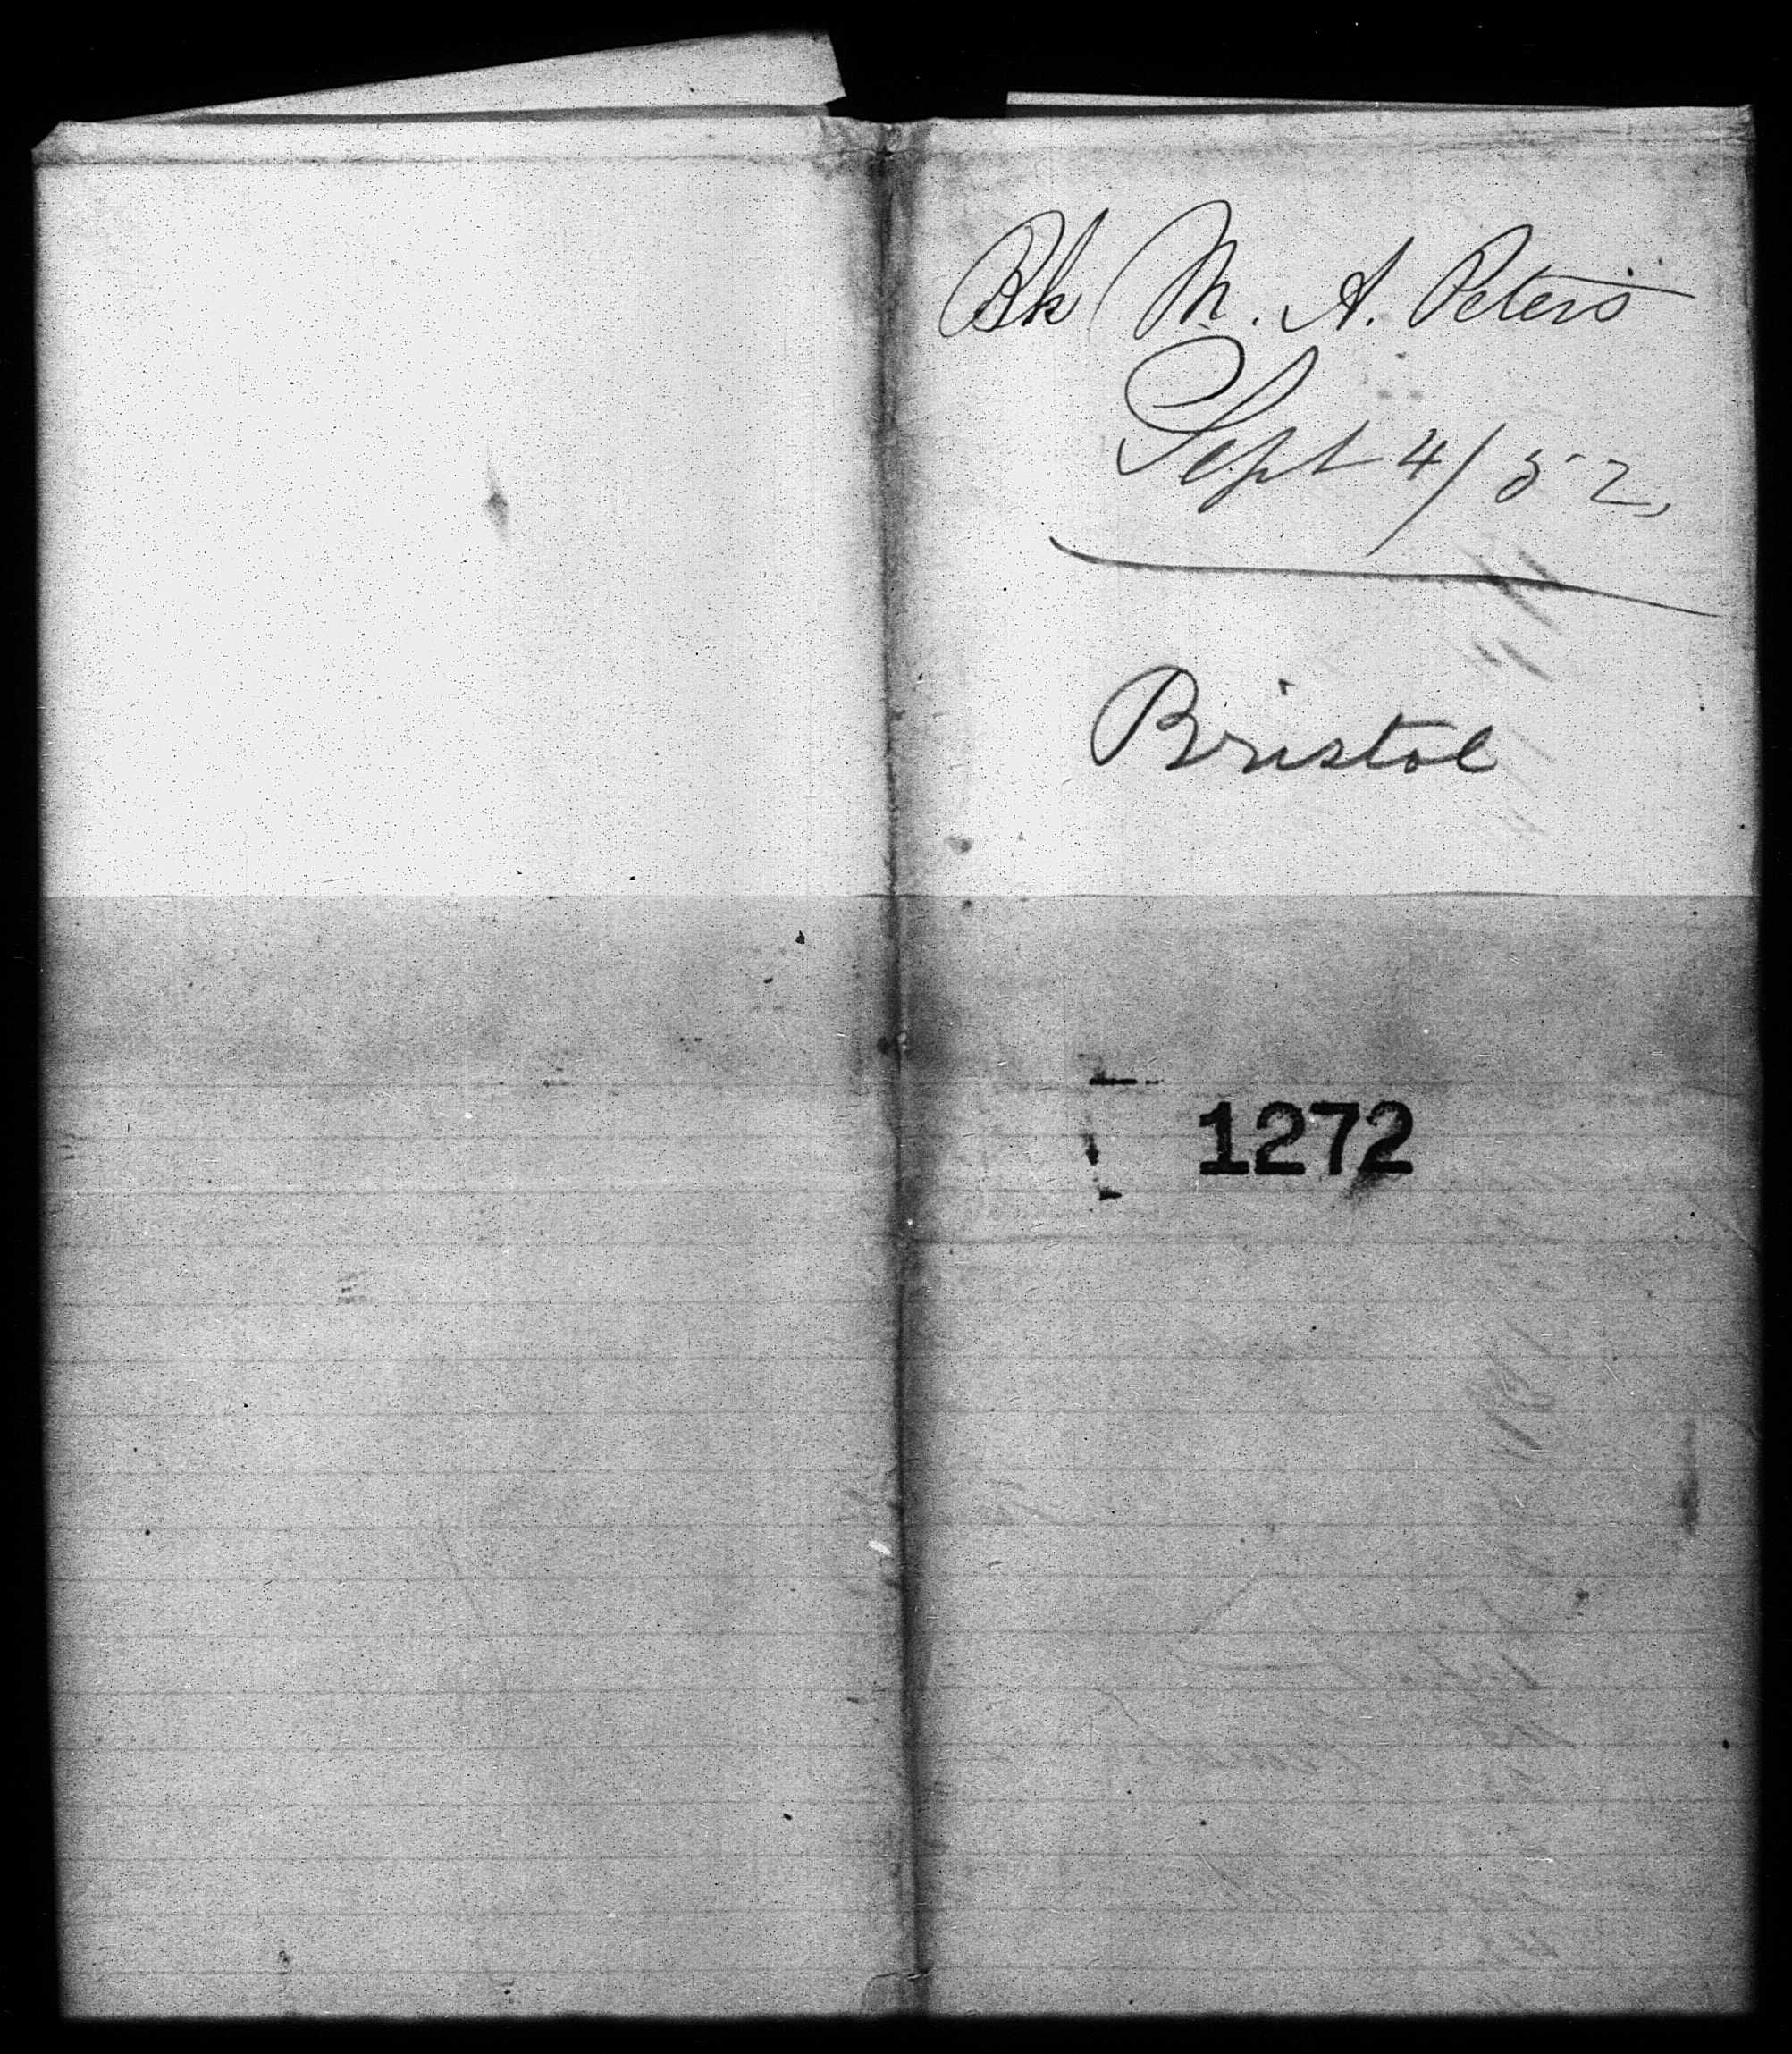 Bk M. A. Peters
Sept 4/52,
Bristol
1272